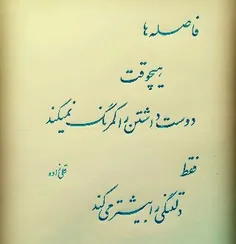 فاصله‌ها
هیچوقت
دوست داشتن را کمرنگ نمیکنند
فقط
دلتنگی را بیشتر می کند